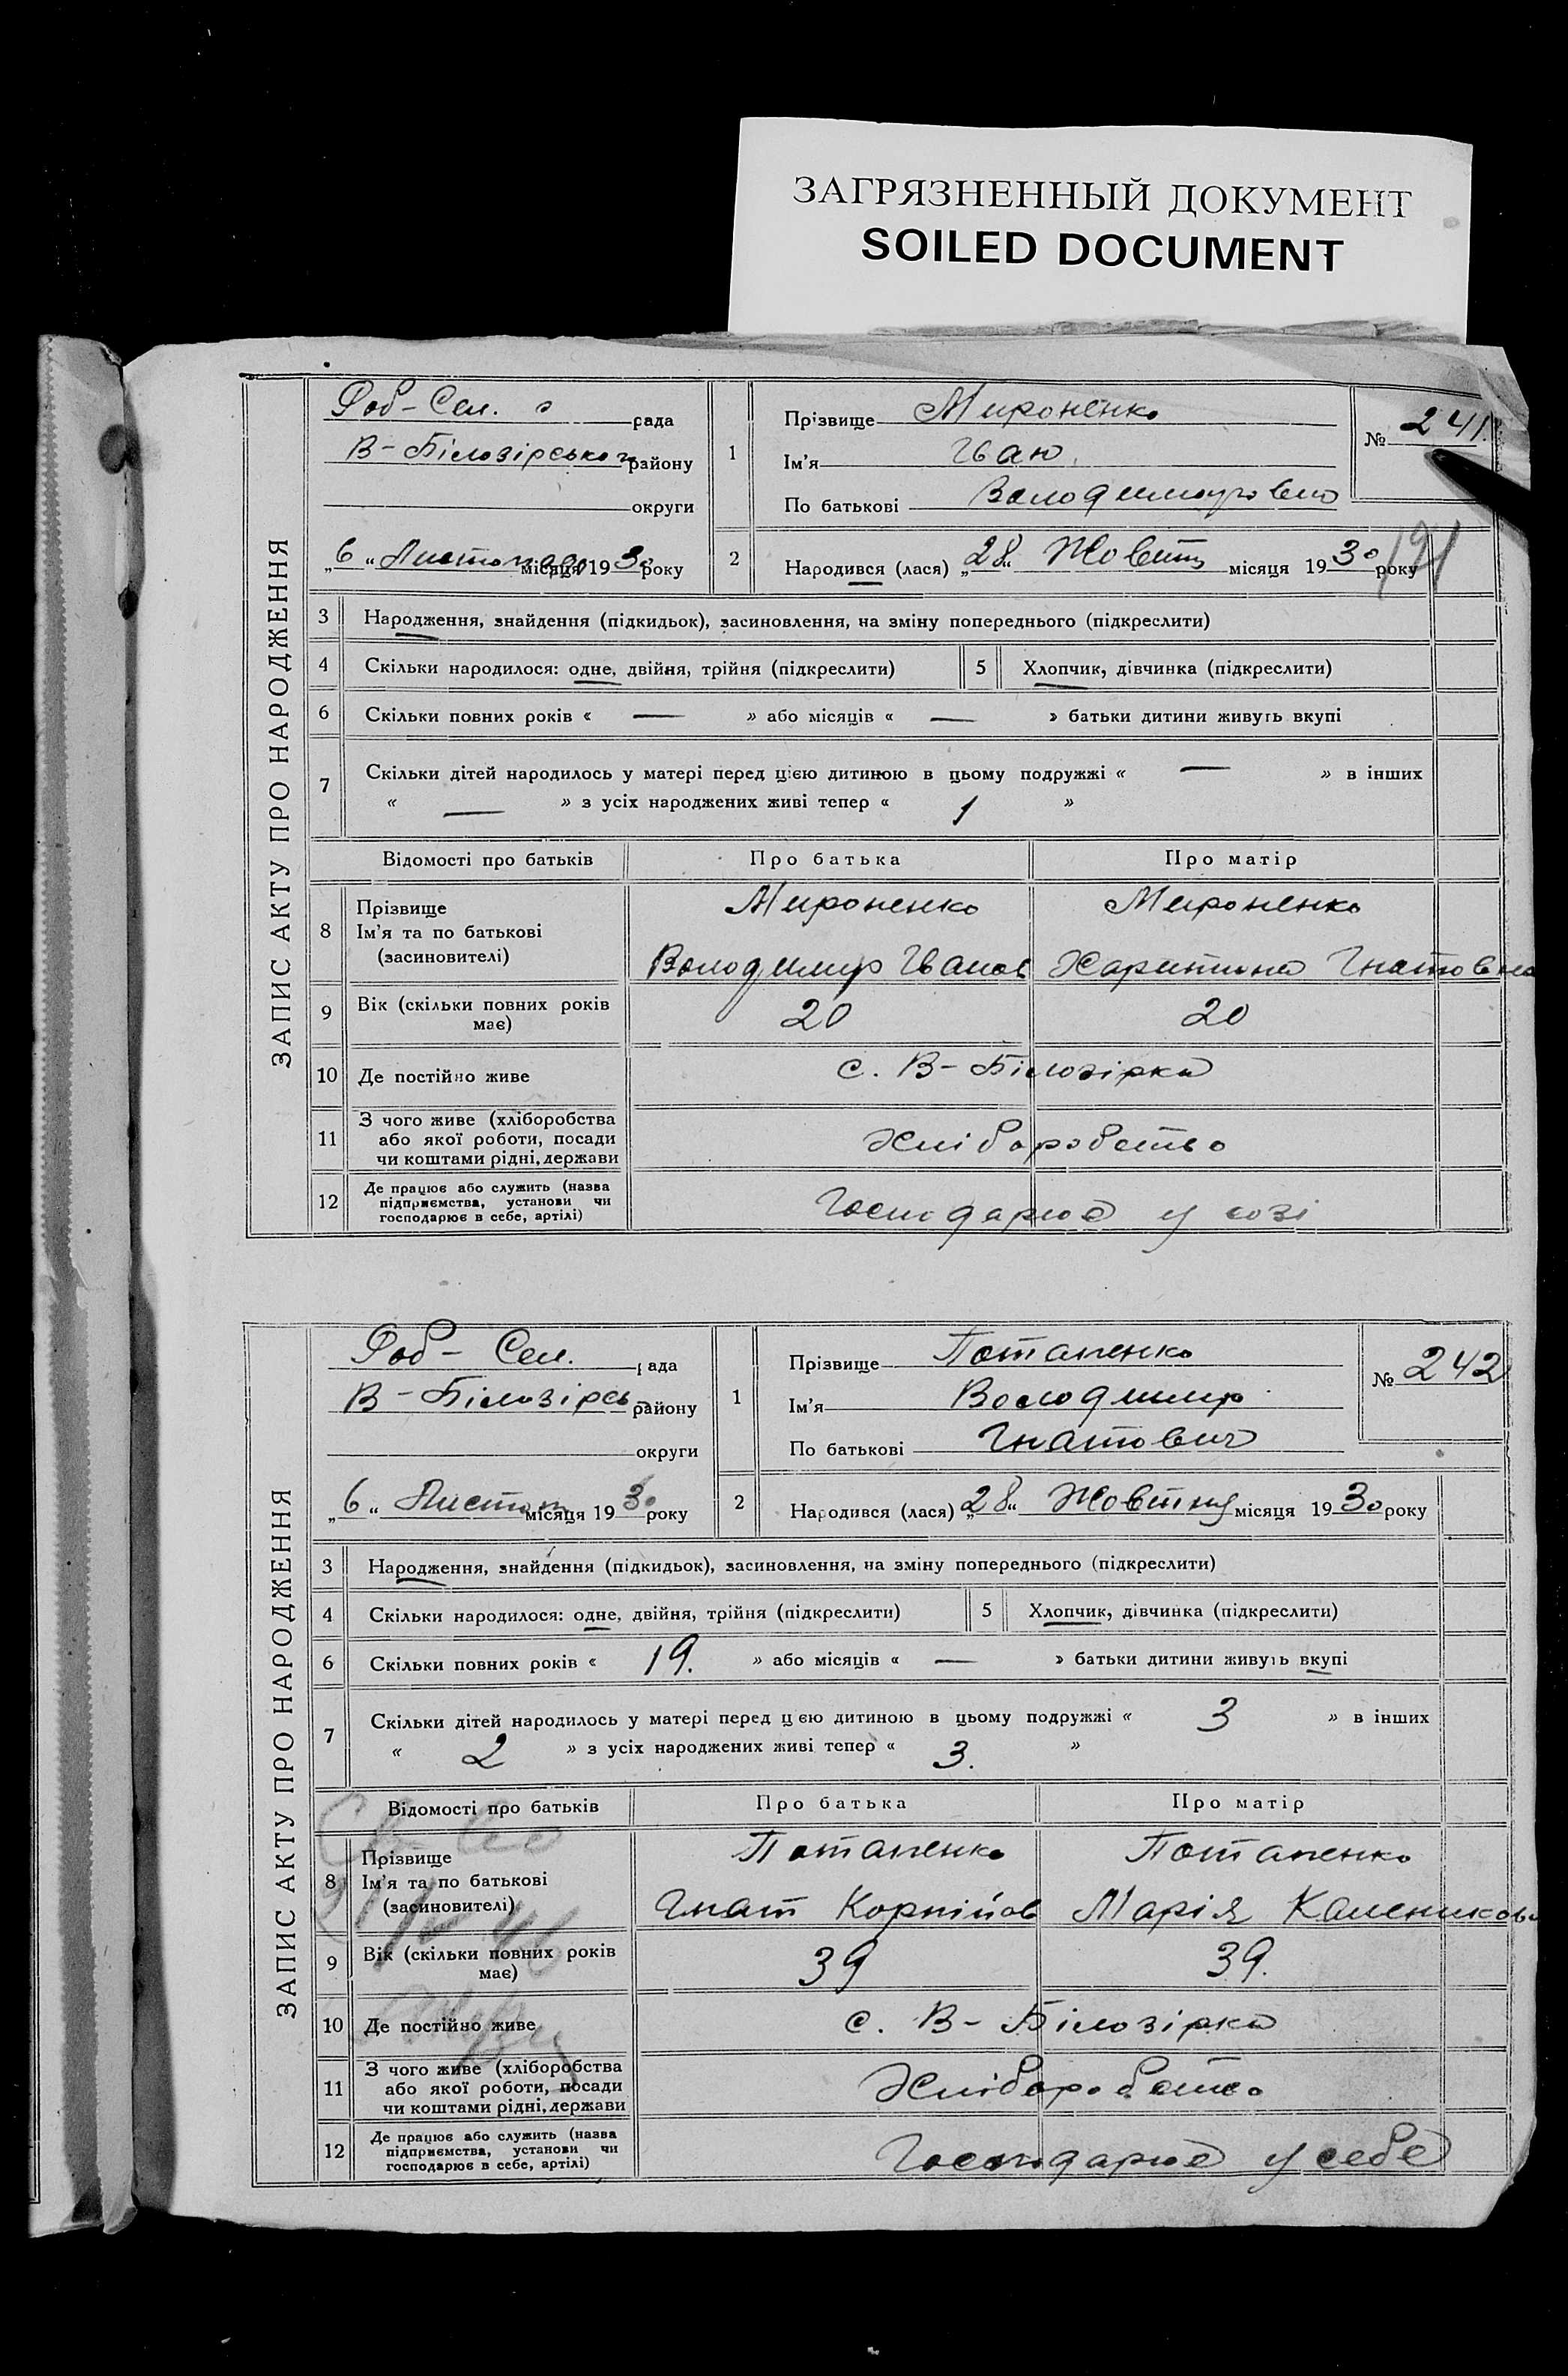 ЗАГРЯЗНЕННЫЙ ДОКУМЕНТ
SOILED DOCUMENT
ЗАПИС АКТУ ПРО НАРОДЖЕННЯ
Роб-Сел. рада
В-Білозірського району
округи
„6“ Листопада місяця 1930 року
1
Прізвище Мироненко
Ім'я Іван
По батькові Володимирович
№ 241.
2
Народився (лася) „28“ Жовтня місяця 1930 року
3 Народження, знайдення (підкидьок), засиновлення, на зміну попереднього (підкреслити)
4 Скільки народилося: одне, двійня, трійня (підкреслити) 5 Хлопчик, дівчинка (підкреслити)
6 Скільки повних років « — » або місяців « — » батьки дитини живуть вкупі
7 Скільки дітей народилось у матері перед цією дитиною в цьому подружжі « — » в інших
« — » з усіх народжених живі тепер « 1 »
Відомості про батьків Про батька Про матір
8 Прізвище Мироненко Мироненко
Ім'я та по батькові
(засиновителі) Володимир Іванов Харитина Гнатовна
9 Вік (скільки повних років
має) 20 20
10 Де постійно живе с. В-Білозірка
11 З чого живе (хліборобства
або якої роботи, посади
чи коштами рідні, держави Хліборобство
12 Де працює або служить (назва
підприємства, установи чи
господарює в себе, артілі) Господарює у созі
ЗАПИС АКТУ ПРО НАРОДЖЕННЯ
Роб-Сел. рада
В-Білозірсь району
округи
„6“ Листоп місяця 1930 року
1
Прізвище Потапенко
Ім'я Володимир
По батькові Гнатович
№ 242
2
Народився (лася) „28“ Жовтня місяця 1930 року
3 Народження, знайдення (підкидьок), засиновлення, на зміну попереднього (підкреслити)
4 Скільки народилося: одне, двійня, трійня (підкреслити) 5 Хлопчик, дівчинка (підкреслити)
6 Скільки повних років « 19. » або місяців « — » батьки дитини живуть вкупі
7 Скільки дітей народилось у матері перед цією дитиною в цьому подружжі « 3 » в інших
« 2 » з усіх народжених живі тепер « 3. »
Відомості про батьків Про батька Про матір
8 Прізвище Потапенко Потапенко
Ім'я та по батькові
(засиновителі) Гнат Корнійов Марія Каленикова
9 Вік (скільки повних років
має) 39 39.
10 Де постійно живе с. В-Білозірка
11 З чого живе (хліборобства
або якої роботи, посади
чи коштами рідні, держави Хліборобство
12 Де працює або служить (назва
підприємства, установи чи
господарює в себе, артілі) Господарює у себе